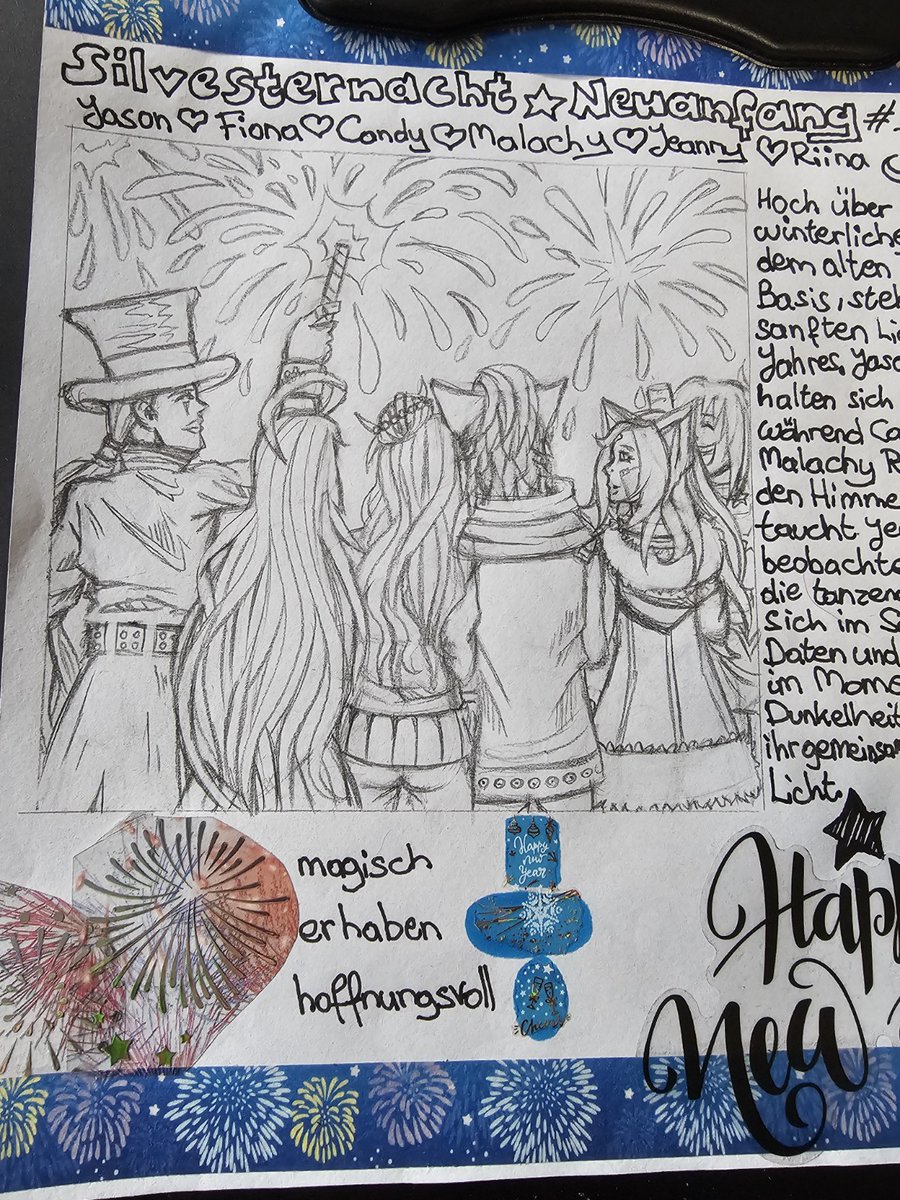 Silvesternacht ☆ Neuanfang #
Jason ♡ Fiona ♡ Candy ♡ Malachy ♡ Jeanny ♡ Riina
Hoch über
winterliche
dem alten
Basis, steh
sanften Li
Jahres. Jaso
halten sich
während Ca
Malachy R
den Himme
taucht Je
beobachte
die tanzen
sich im S
Daten und
im Mome
Dunkelheit
ihr gemeinsa
Licht.
magisch
erhaben
hoffnungsvoll
Happy
new
YEAR
Cheers
Happ
New